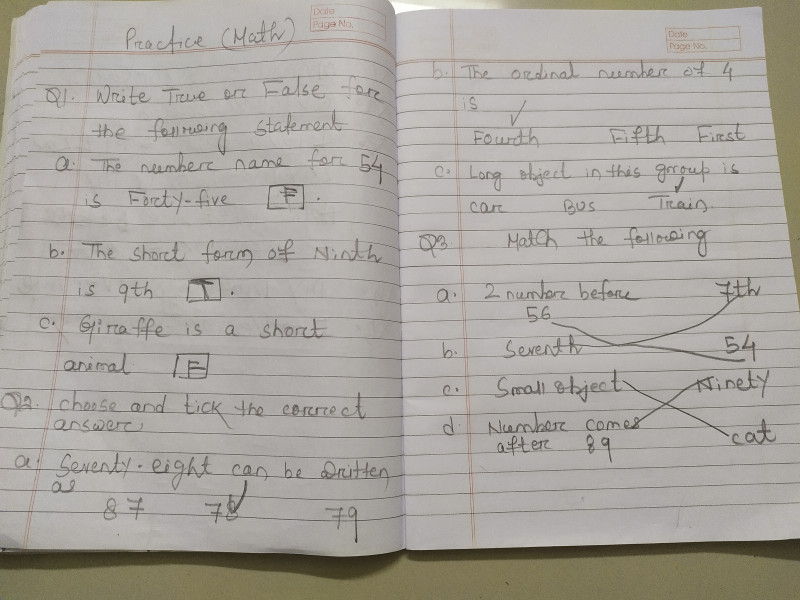 Date
Page No.
Practice (Math)
Q1. Write True or False for
the following statement
a. The number name for 54
is Forty-five F .
b. The short form of Ninth
is 9th T .
c. Giraffe is a short
animal F
Q2. choose and tick the correct
answer,
a. Seventy-eight can be written
as
87 78 79
Date
Page No.
b. The ordinal number of 4
is
Fourth Fifth First
c. Long object in this group is
car Bus Train.
Q3 Match the following
a. 2 number before 7th
56
b. Seventh 54
c. Small object Ninety
d. Number comes
after 89 cat